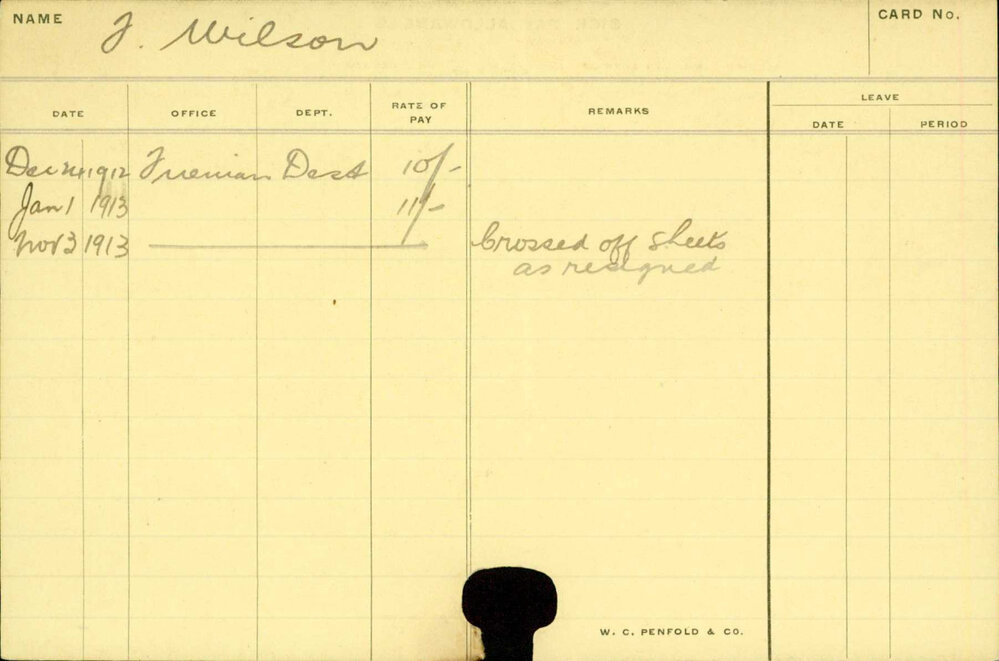 NAME F. Wilson CARD No.
DATE OFFICE DEPT. RATE OF PAY REMARKS LEAVE
DATE PERIOD
Dec 24 1912 Fireman Dest 10/-
Jan 1 1913 11/-
Nov 3 1913 Crossed off sheets
as resigned
W. C. PENFOLD & CO.